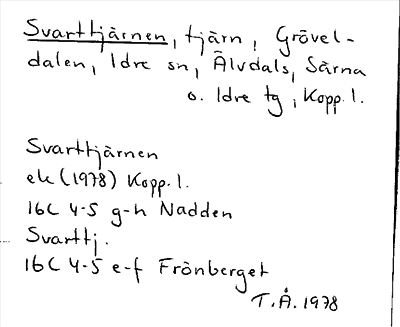 Svarttjärnen, tjärn, Grövel-
dalen, Idre sn, Älvdals, Särna
o. Idre tg, Kopp. l.
Svarttjärnen
ek (1978) Kopp. l.
16C 4-5 g-h Nadden
Svarttj.
16C 4-5 e-f Frönberget
T.Å. 1978